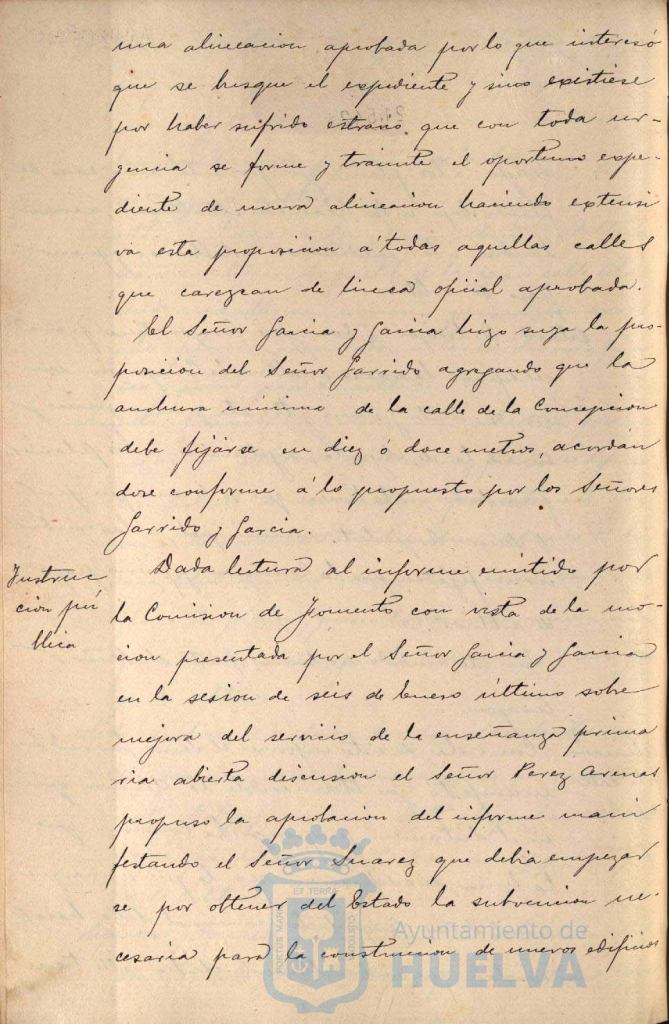 una alineacion aprobada por lo que interesó
que se busque el expediente y sino existiese
por haber sufrido estravio, que con toda ur-
gencia se forme y tramite el oportuno expe-
diente de nueva alineacion haciendo extensi
va esta proposicion á todas aquellas calles
que carezcan de linea oficial aprobada.
El Señor Garcia y Garcia hizo suya la pro-
posicion del Señor Garrido agregando que la
anchura minima de la calle de la Concepcion
debe fijarse en diez ó doce metros, acordan
dose conforme á lo propuesto por los Señores
Garrido y Garcia.
Instruc
ción pú
blica
Dada lectura al informe emitido por
la Comision de Fomento con vista de la mo-
cion presentada por el Señor Garcia y Garcia
en la sesion de seis de Enero último sobre
mejora del servicio de la enseñanza prima
ria abierta discusion el Señor Perez Arenas
propuso la aprobacion del informe mani
festando el Señor Suarez que debia empezar
se por obtener del Estado la subvencion ne-
cesaria para la construccion de nuevos edificios
PORTUS MARIS
ET TERRÆ
CUSTODIA
Ayuntamiento de
HUELVA